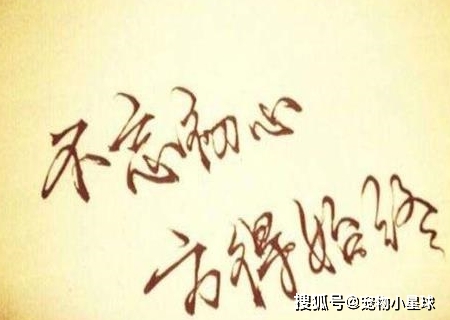 不忘初心
方得始终
搜狐号@宠物小星球